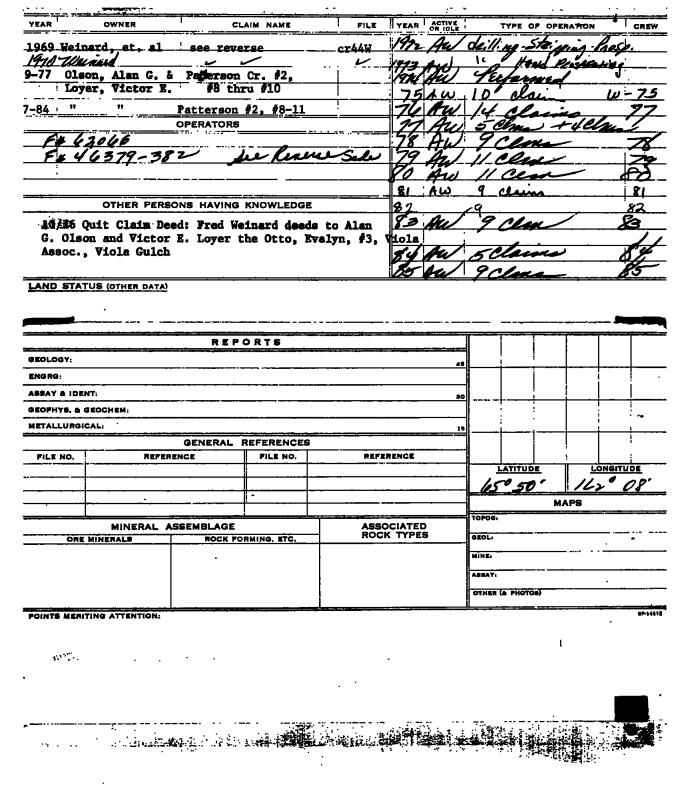 YEAR OWNER CLAIM NAME FILE
1969 Weinard, et. al see reverse cr44W
1970 Weinard ✓ ✓ ✓
9-77 Olson, Alan G. & Patterson Cr. #2,
Loyer, Victor E. #8 thru #10
7-84 " " Patterson #2, #8-11
OPERATORS
F# 62066
F# 46379-382 See Reverse Side
OTHER PERSONS HAVING KNOWLEDGE
Quit Claim Deed: Fred Weinard deeds to Alan
G. Olson and Victor E. Loyer the Otto, Evalyn, #3, Viola
Assoc., Viola Gulch
LAND STATUS (OTHER DATA)
YEAR ACTIVE OR IDLE TYPE OF OPERATION CREW
1972 AW drilling-Stripping Prosp.
1973 AW " Hand Prospecting
1974 AW Performed
75 AW 10 claim W-75
76 AW 14 Claims 77
77 AW 5 Clms + 4 Claim
78 AW 9 Clms 78
79 AW 11 Clms 79
80 AW 11 Clms 80
81 AW 9 claims 81
82 9 82
83 AW 9 Clms 83
84 AW 5 Claims 84
85 AW 9 Clms 85
REPORTS
GEOLOGY: 45
ENGRG:
ASSAY & IDENT: 30
GEOPHYS. & GEOCHEM:
METALLURGICAL: 15
GENERAL REFERENCES
FILE NO. REFERENCE FILE NO. REFERENCE
LATITUDE LONGITUDE
65° 50' 162° 08'
MAPS
TOPOG:
GEOL:
MINE:
ASSAY:
OTHER (& PHOTOS)
MINERAL ASSEMBLAGE ASSOCIATED ROCK TYPES
ORE MINERALS ROCK FORMING, ETC.
POINTS MERITING ATTENTION: